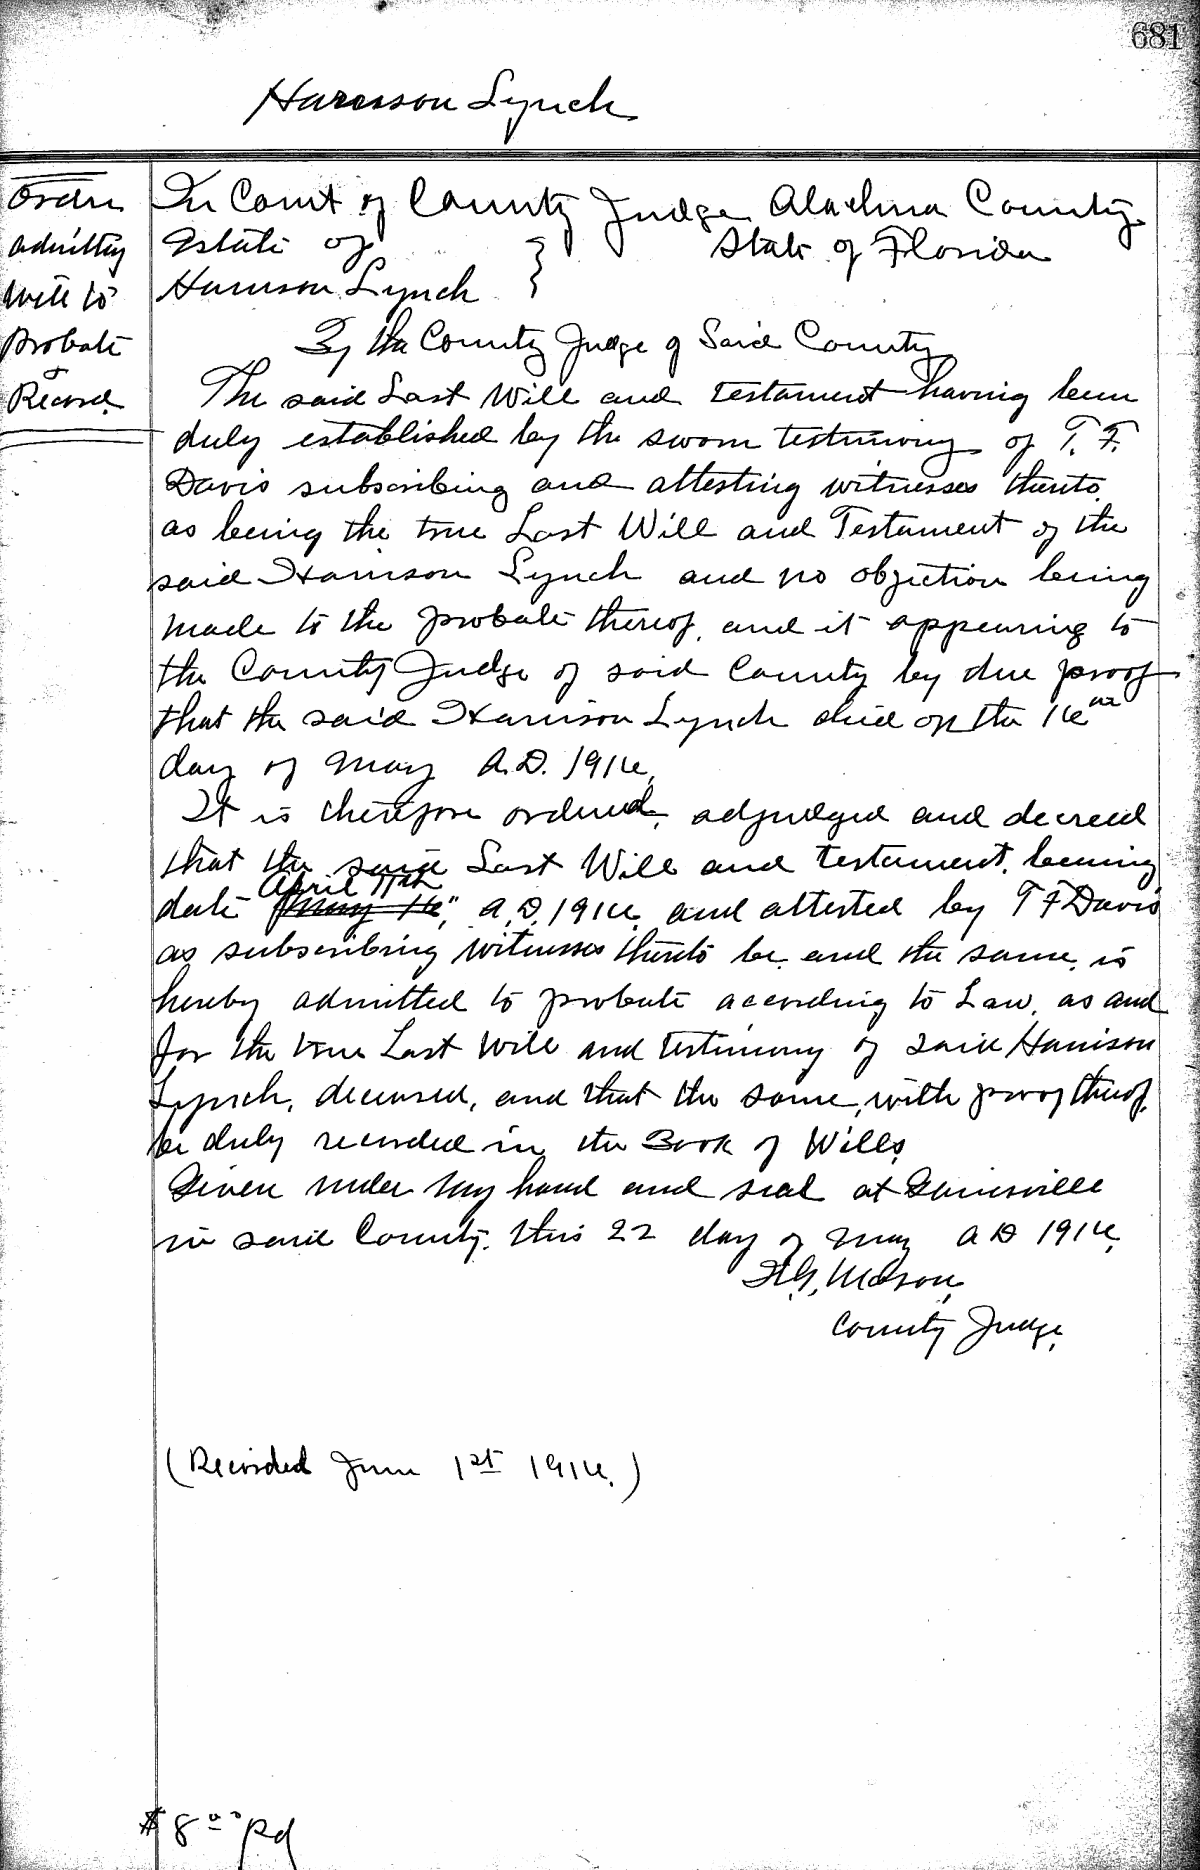 681
Harrison Lynch
Order
admitting
Will to
Probate
&
Record.
In Court of County Judge Alachua County.
Estate of } State of Florida
Harrison Lynch }
By the County Judge of Said County
The said Last Will and testament having been
duly established by the sworn testimony of T. F.
Davis subscribing and attesting witnesses thereto
as being the true Last Will and Testament of the
said Harrison Lynch and no objection being
made to the probate thereof, and it appearing to
the County Judge of said County by due proof
that the said Harrison Lynch died on the 14th
day of May A.D. 1914,
It is therefore ordered, adjudged and decreed
that the said Last Will and testament, bearing
April 11th
date May 14", A.D. 1914, and attested by T F Davis
as subscribing witnesses thereto be, and the same, is
hereby admitted to probate according to Law, as and
for the true Last Will and testimony of said Harrison
Lynch, deceased, and that the same, with proof thereof,
be duly recorded in the Book of Wills.
Given under my hand and seal at Gainesville
in said County, this 22 day of May A D 1914,
H.G. Mason,
County Judge,
(Recorded June 1st 1914.)
$8.00 pd